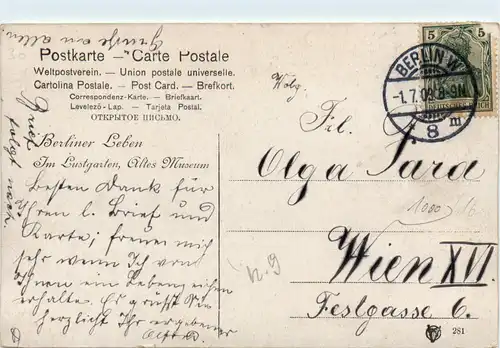 Grüsse an allen
30
Postkarte – Carte Postale
Weltpostverein. – Union postale universelle.
Cartolina Postale. – Post Card. – Brefkort.
Correspondenz-Karte. – Briefkaart.
Levelező-Lap. – Tarjeta Postal.
ОТКРЫТОЕ ПИСЬМО.
Brief
folgt noch.
Berliner Leben
Im Lustgarten, Altes Museum
Besten Dank für
Ihren l. Brief und
Karte; freue mich
sehr wenn Ich von
Ihnen ein Lebenszeichen
erhalte. Es grüsst Sie
herzlicht Ihr ergebener
5 5
BERLIN W.
-1.7.08.8-9N.
8 m
Wolg.
Frl.
Olga Sara
1080
16
Wien XVI.
Festgasse 6.
n.g
281